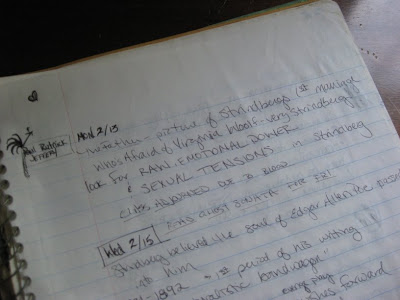 MON 2/13
notation - picture of Strindberg (1st marriage
Who's Afraid of Virginia Woolf - very Strindberg
look for RAW, EMOTIONAL POWER
& SEXUAL TENSIONS in Strindberg
CLASS ADJOURNED DUE TO
Wed 2/15
GHOST SONATA FOR FRI
Strindberg believed the soul of Edgar Allen Poe
into him
1892 1st period of his writing
every play
forward